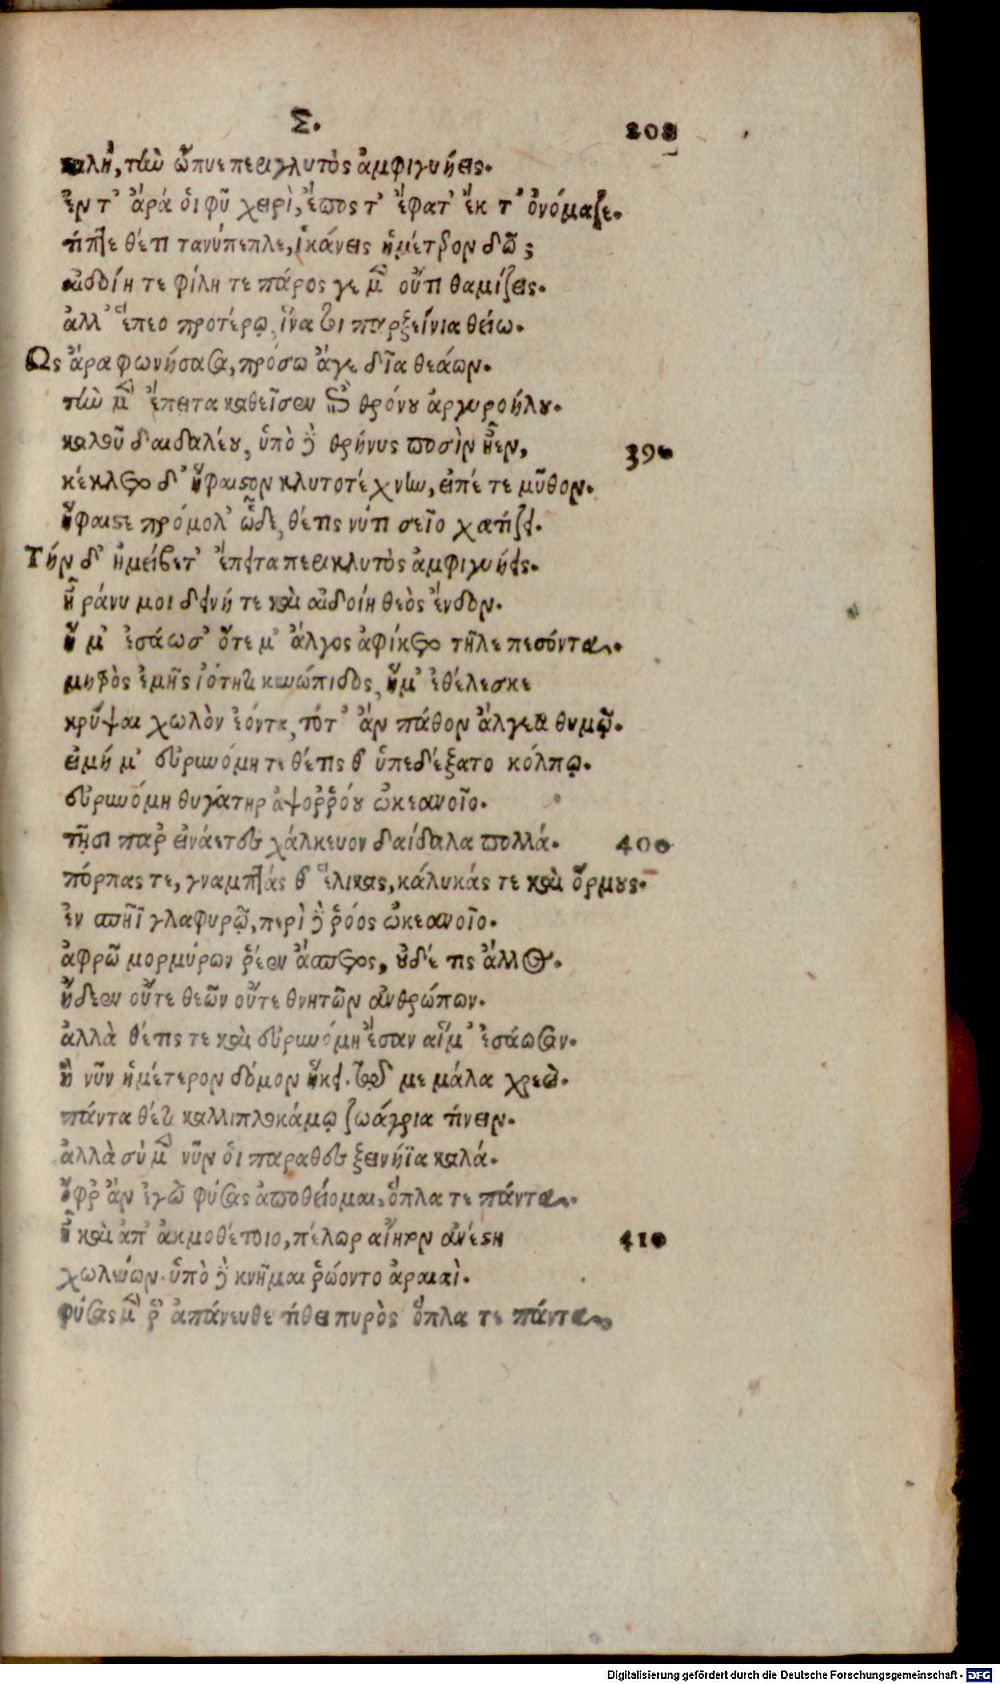 Σ.
208
καλὴ, τὴν ὤπυε περικλυτὸς ἀμφιγυήεις.
ἔν τ' ἄρά ὁι φῦ χειρὶ, ἔπος τ' ἔφατ' ἔκ τ' ὀνόμαζε.
τίπτε θέτι τανύπεπλε, ἱκάνεις ἡμέτερον δῶ;
αἰδοίη τε φίλη τε πάρος γε μὲν οὔτι θαμίζεις.
ἀλλ' ἕπεο προτέρω, ἵνα τοι παρξείνια θείω.
Ως ἄρα φωνήσασα, πρόσω ἄγε δῖα θεάων.
τὴν μὲν ἔπειτα καθεῖσεν ἐπὶ θρόνου ἀργυροήλου.
καλοῦ δαιδαλέου, ὑπὸ δὲ θρήνυς ποσὶν ἦεν, 390
κέκλετο δ' ἥφαιστον κλυτοτέχνην, εἶπέ τε μῦθον.
ἥφαιστε πρόμολ' ὧδε, θέτις νύτι σεῖο χατίζει.
Τὴν δ' ἠμείβετ' ἔπειτα περικλυτὸς ἀμφιγυήεις.
ἦ ράνυ μοι δεινή τε καὶ αἰδοίη θεὸς ἔνδον.
ἥ μ' ἐσάωσ' ὅτε μ' ἄλγος ἀφίκετο τῆλε πεσόντα.
μητρὸς ἐμῆς ἰότητι κυνώπιδος, ἥμ' ἐθέλεσκε
κρῦψαι χωλὸν ἐόντα, τότ' ἂν πάθον ἄλγεα θυμῷ.
εἰμή μ' εὐρυνόμη τε θέτις θ' ὑπεδέξατο κόλπῳ.
εὐρυνόμη θυγάτηρ ἀψορρόου ὠκεανοῖο.
τῇσι παρ' εἰνάετες χάλκευον δαίδαλα πολλά. 400
πόρπας τε, γναμπτάς θ' ἕλικας, κάλυκάς τε καὶ ὅρμους.
ἐν σπῆϊ γλαφυρῷ, περὶ δὲ ῥόος ὠκεανοῖο.
ἀφρῷ μορμύρων ῥέεν ἄσπετος, οὐδέ τις ἄλλος.
ἤδεεν οὔτε θεῶν οὔτε θνητῶν ἀνθρώπων.
ἀλλὰ θέτις τε καὶ εὐρυνόμη ἔσαν αἵμ' ἐσάωσαν.
ἣ νῦν ἡμέτερον δόμον ἥκει. τῷ με μάλα χρεὼ.
πάντα θέτι καλλιπλοκάμῳ ζωάγρια τίνειν.
ἀλλὰ σὺ μὲν νῦν ὁι παραθες ξεινήϊα καλά.
ὄφρ' ἂν ἐγὼ φύσας ἀποθείομαι, ὅπλα τε πάντα.
ἦ καὶ ἀπ' ἀκμοθέτοιο, πέλωρ αἴητον ἀνέστη 410
χωλεύων. ὑπὸ δὲ κνῆμαι ῥώοντο ἀραιαὶ.
φύσας μέν ῥ' ἀπάνευθε τίθει πυρὸς ὅπλα τε πάντα
Digitalisierung gefördert durch die Deutsche Forschungsgemeinschaft - DFG